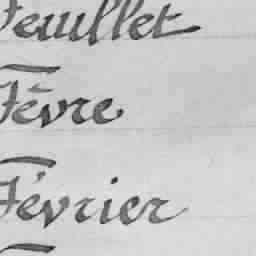 Feuillet
Fèvre
Février